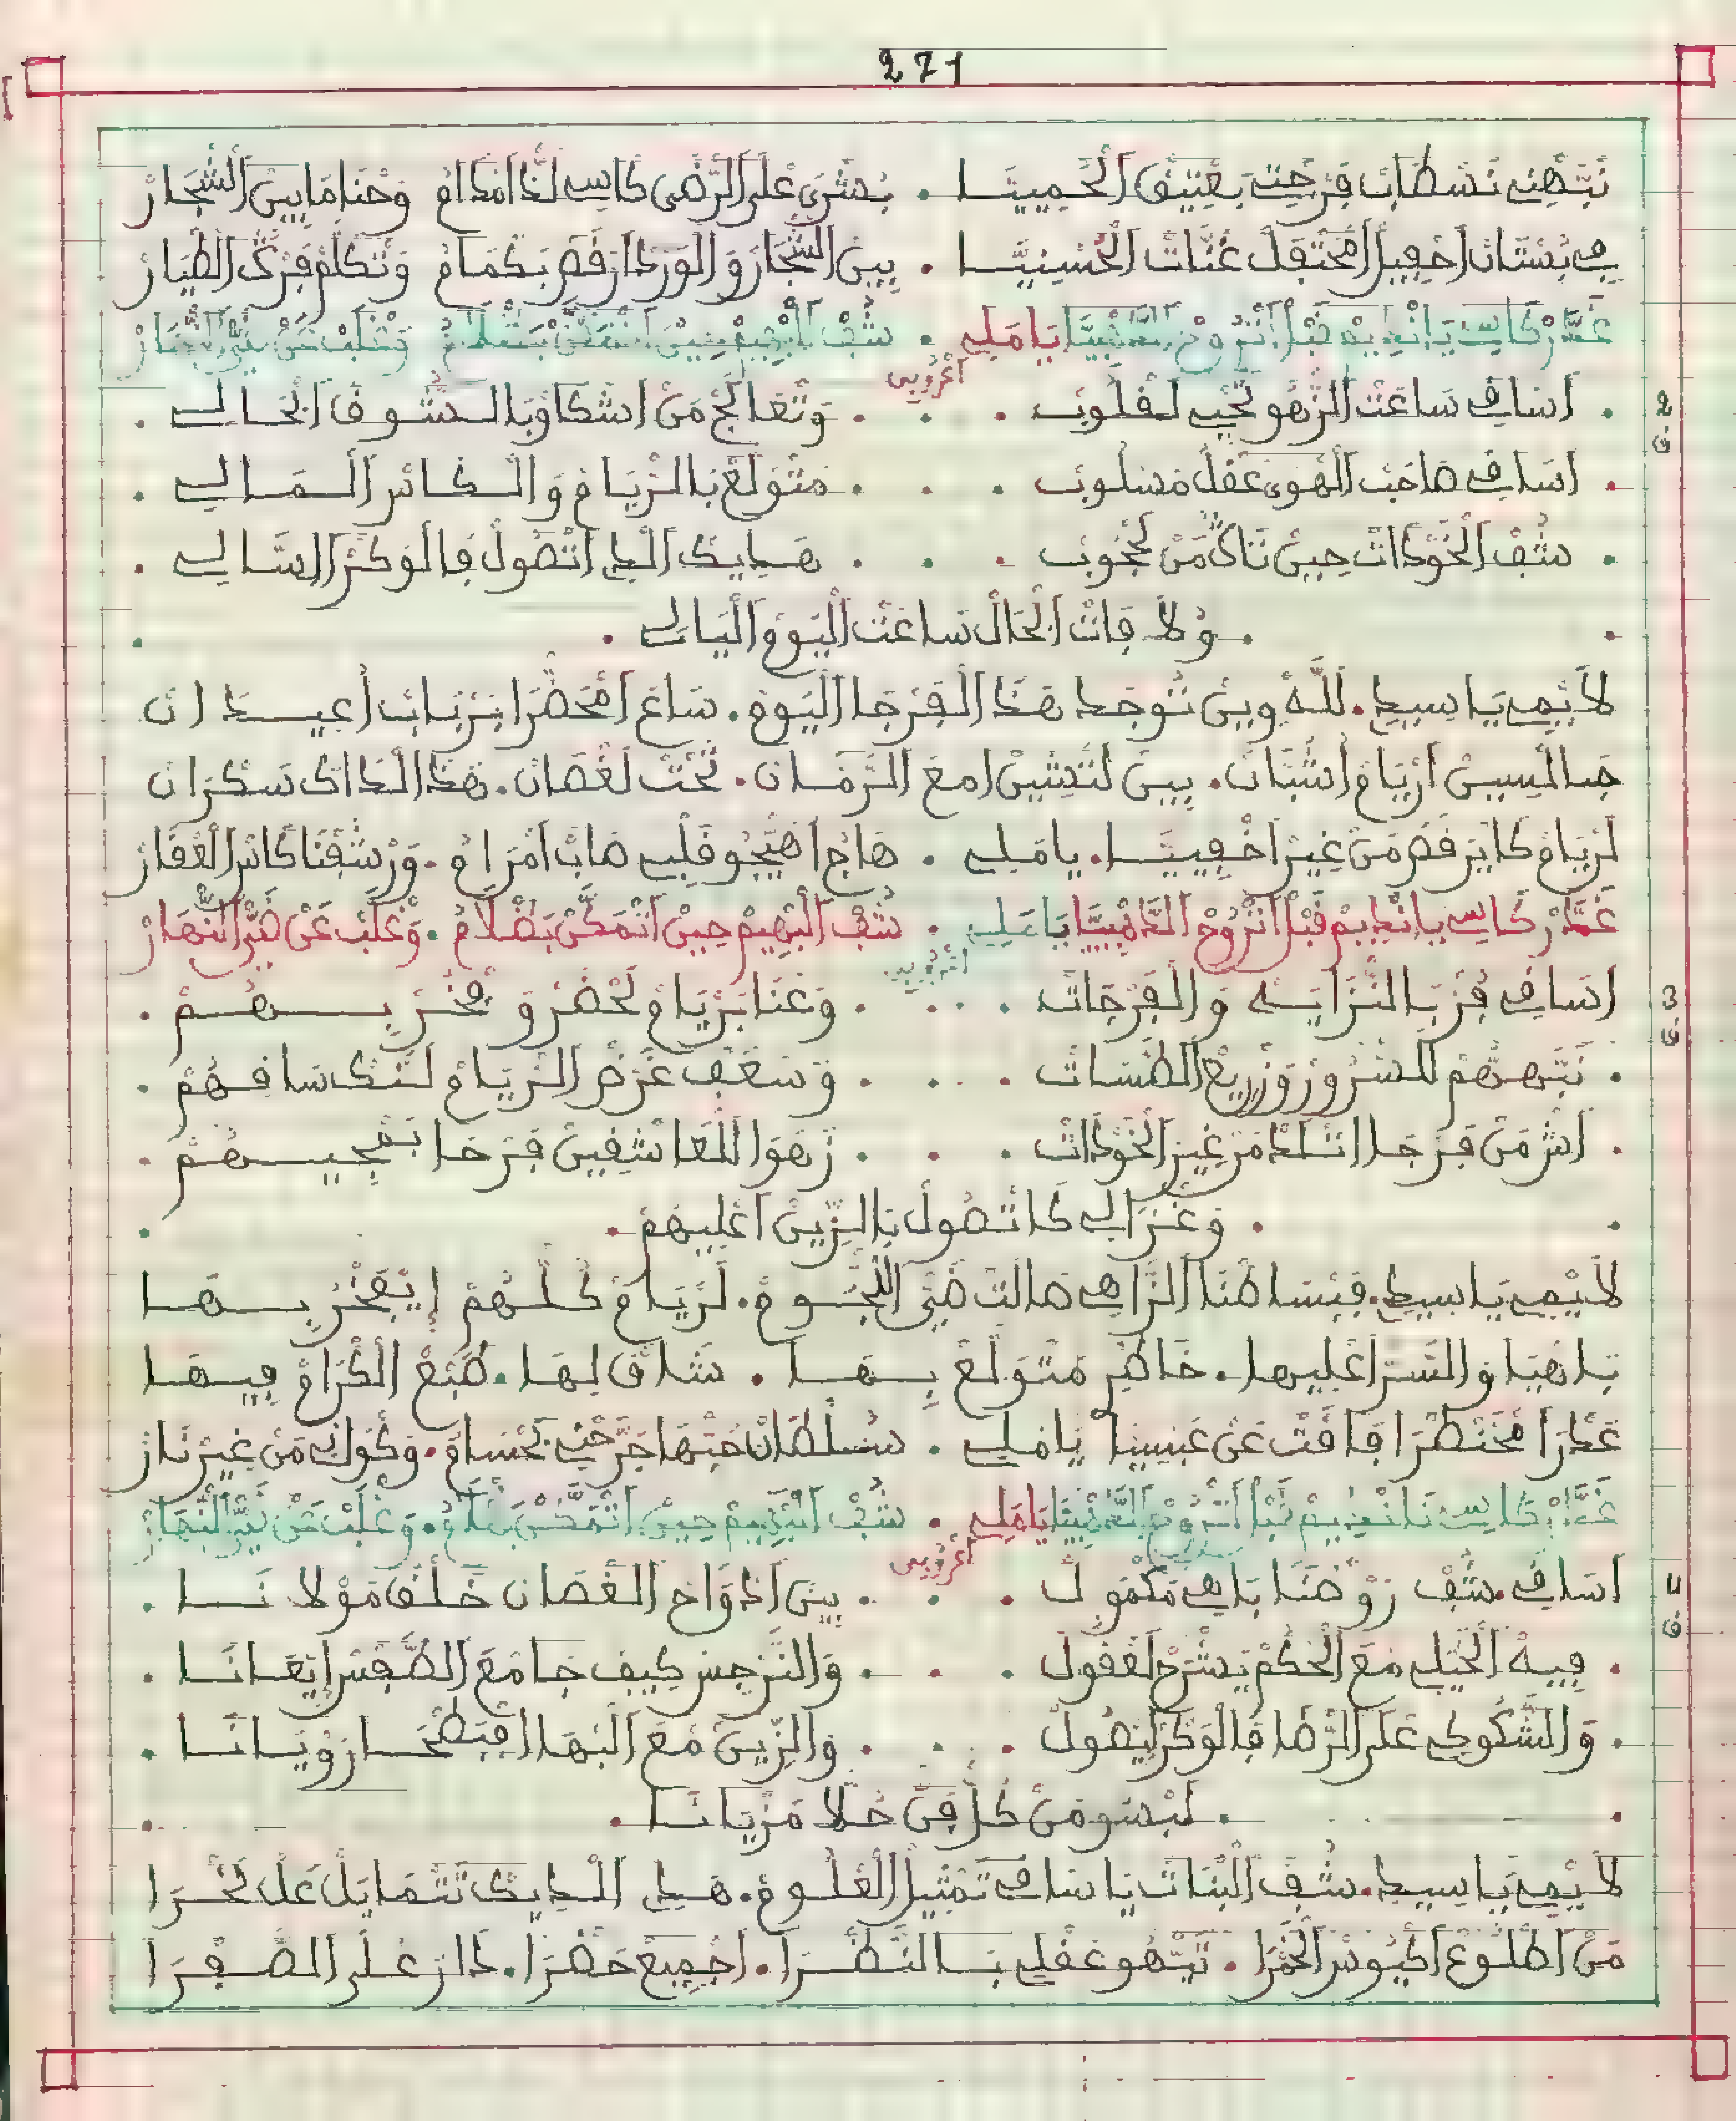 271
نَتْهَنى نَشْطَانْ فَرْحْتِي بَعْتِيقْ الْحَمِيَّا . بُشْرَى عْلَى الرّْضَى كَاسِي لَذَّا امْدَامْ وَحْنَا مَا بِينْ الشّْجَارْ
فِي بُسْتَانْ احْفِيلْ امْحَتْفَلْ غَنَّاتْ الْحُسِينِيَّا . بِينْ الشّْجَارْ وَالْوَرْدْ ارْقَصْ بَكْمَامُ وَتْكَلَّمْ فَرْكْ الطّْيَارْ
عَمَّرْ كَاسِي يَا نْدِيمْ قَبْلْ اتْرُوحْ الدَّهْبِيَّا يَا مَلِي . شُفْ الْبْهِيمْ حِينْ اتْمَكَّنْ بَظْلَامُ وَغْلَبْ عَنْ ضَيّْ النّْهَارْ
اعْرُوبِي
2 ق
. اَسَاقِي سَاعَتْ الزّْهُو تَحْيِي لَقْلُوبْ . . . وَتْعَالَجْ مَنْ اشْكَاوْ بَالشُّوقْ الْحَالِي .
. اَسَاقِي صَاحَبْ الْهْوَى عَقْلُ مَسْلُوبْ . . . مَتْوَلَّعْ بَالرّْيَامْ وَالْكَاسْ الْمَالِي .
. شُفْ الْخَوْدَاتْ حِينْ تَاكُ مَنْ لَحْجُوبْ . . . هَدِيكْ الّْدِي اتْصُولْ فَالْوَكْرْ السَّالِي .
. وُلَا فَاتْ الْحَالْ سَاعَتْ الْيُومْ الْيَالِي .
لَايْمِي يَا سِيدِي . لِلَّهْ وِينْ تُوجَدْ هَذَا الْفَرْجَا الْيُومْ . سَاعَ امْحَضْرَا بَرْنَاتْ اعِيدَانْ
جَالْسِينْ ارْيَامْ اشْبَانْ . بِينْ لَتْشِينْ امْعَ الرَّمَّانْ . تَحْتْ لَغْصَانْ . هَذَا الْدَاكْ سَكْرَانْ
لَرْيَامْ كَايَرْقَصْ مَنْ غِيرْ اخْفِيَّا . يا مَلِي . هَاجْ اهْيَجُو قَلْبِي صَابْ امْرَامُ . وَرْشَفْنَا كَاسْ الْعْقَارْ
عَمَّرْ كَاسِي يا نْدِيمْ قَبْلْ اتْرُوحْ الدَّهْبِيَّا يَا مَلِي . شُفْ الْبْهِيمْ حِينْ اتْمَكَّنْ بَظْلَامُ . وَغْلَبْ عَنْ ضَيّْ النّْهَارْ
اعْرُوبِي
3 ق
اَسَاقِي فُزْ بَالنّْزَايَهْ وَالْفَرْجَاتْ . . . وَغْنَا بَرْيَامْ لَحْضَرْ وَفْخَرْ بِهُمْ .
. نَبَّهْهُمْ لَلسّْرُورْ وَزْرِيعْ الطَّسَاتْ . . . وَسْعَفْ غَرْضْ الرّْيَامْ لَنَّكْ سَاقِهُمْ .
. اشْ مَنْ فَرْجَا اتْلَدّْ مَنْ غِيرْ الْخَوْدَاتْ . . . زَهْوَا لَلْعَاشْقِينْ فَرْحَا تَفْجِيهُمْ .
. وَغْزَالِي كَاتْصُولْ بَالزِّينْ اعْلِيهُمْ .
لَايْمِي يَا سِيدِي . فَبْسَاطْنَا الزَّاهِي صَالَتْ ضَيّْ النّْجُومْ . لَرْيَامْ كُلّْهُمْ ايْفَخْرُ بِهَا
بَاهْيَا وَالسّْتَرْ اعْلِيهَا . خَاطْرِ مَتْوَلَّعْ بِهَا . شَلَّاقْ لِهَا . طَبْعْ الْكْرَامْ فِيهَا
عَدْرَا مْخَنْطْرَا فَاقَتْ عَنْ عَبْسِيَّا يَا مَلِي . سُلْطَانْ حُبّْهَا جَرَّحْنِي بَحْسَامُ . وَكْوَانِي مَنْ غِيرْ نَارْ
عَمَّرْ كَاسِي يَا نْدِيمْ قَبْلْ اتْرُوحْ الدَّهْبِيَّا يَا مَلِي . شُفْ الْبْهِيمْ حِينْ اتْمَكَّنْ بَظْلَامُ . وَغْلَبْ عَنْ ضَيّْ النّْهَارْ
اعْرُوبِي
4 ق
اَسَاقِي . شُفْ رَوْضْنَا بَاهِي مَكْمُولْ . . . بِينْ ادْوَاحْ الْغْصَانْ خَلْقْ مَوْلَانَا .
. فِيهْ الْخِيلِي مْعَ الْحَكْمْ يَشْرَحْ لَعْقُولْ . . . وَالنَّرْجَسْ كِيفْ جَا مْعَ الطَّقْسْ ايْعَانَا .
. وَالشَّكُوكِي عْلَى الرّْضَا فَالْوَكْرْ ايْصُولْ . . . وَالزِّينْ مْعَ الْبْهَا افْبَطْحَا رْوَيَانَا .
. لَبْسُو مَنْ كُلّْ فَنّْ حُلَّا مَزْيَانَا .
لَايْمِي يَا سِيدِي . شُفْ الْبْنَاتْ يَا سَاقِي تَمْثِيلْ الْعْلُومْ . هَدِي الّْدِيكْ تَتْمَايَلْ عَلْ لَخْرَا
مَنْ اطْلُوعْ اكْيُوسْ الْخَمْرَا . تَيّْهُو عَقْلِي بَالنَّظْرَا . اجْمِيعْ حَضْرَا . دَارْ عْلَى الصَّفْرَا